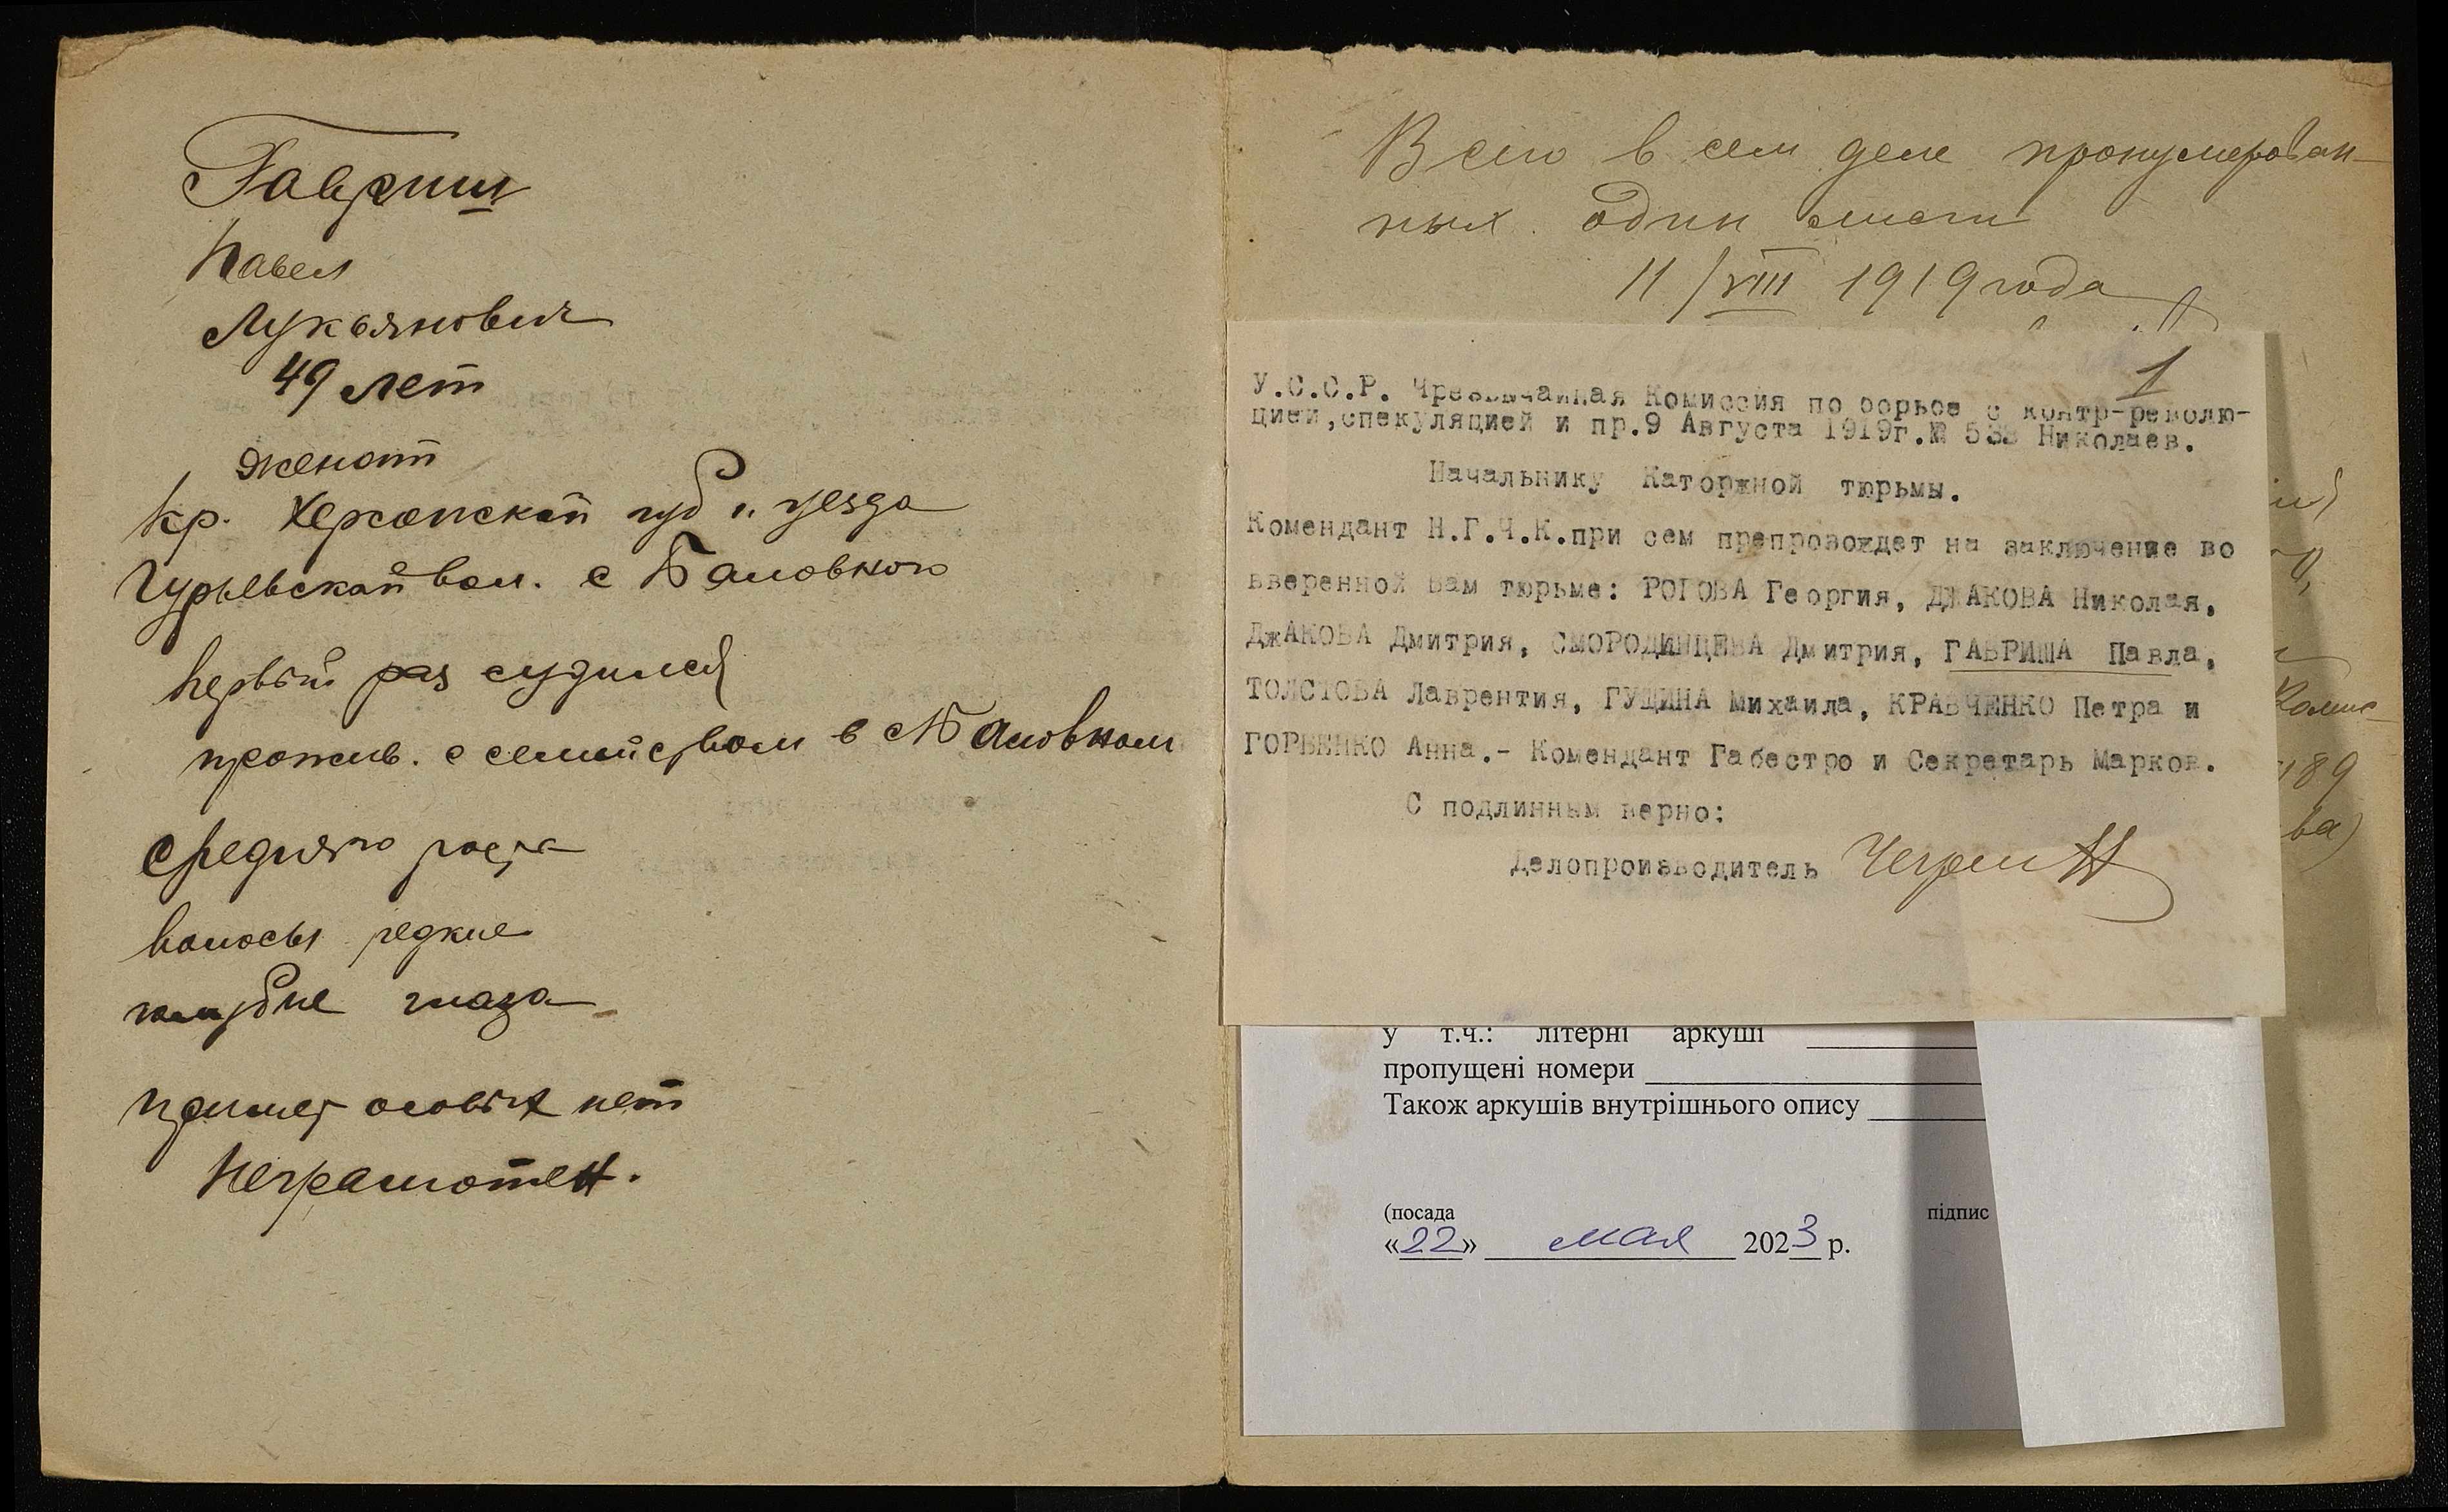 Гавриш
Павел
Лукьянович
49 лет
женат
кр. Херсонской губ и уезда
Гурьевской вол. с Баловного
первый раз судился
прожив. с семейством в с Баловном
среднего роста
волосы редкие
голубые глаза
примет особых нет
неграмотен.
Всего в сем деле пронумерован-
ных один лист
11/VIII 1919 года
1
У.С.С.Р. Чрезвычайная Комиссия по борьбе с контр-револю-
цией,спекуляцией и пр.9 Августа 1919г.№ 533 Николаев.
Начальнику Каторжной тюрьмы.
Комендант Н.Г.Ч.К.при сем препровождет на заключение во
вверенной Вам тюрьме: РОГОВА Георгия, ДЖАКОВА Николая,
ДжАКОВА Дмитрия, СМОРОДИНЦЕВА Дмитрия, ГАВРИША Павла,
ТОЛСТОВА Лаврентия, ГУЩИНА Михаила, КРАВЧЕНКО Петра и
ГОРБЕНКО Анна.- Комендант Габестро и Секретарь Марков.
С подлинным верно:
Делопроизводитель
189
ва)
у т.ч.: літерні аркуші
пропущені номери
Також аркушів внутрішнього опису
(посада підпис
«22» мая 2023 р.